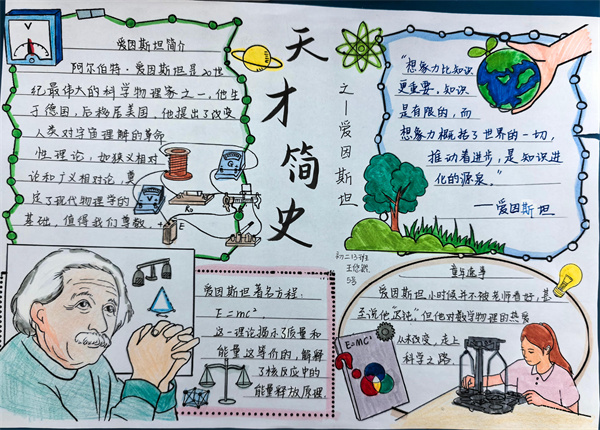 天才简史
之一爱因斯坦
爱因斯坦简介
阿尔伯特·爱因斯坦是20世
纪最伟大的科学物理家之一,他生
于德国,后移居美国,他提出了改变
人类对宇宙理解的革命
性理论,如狭义相对
论和广义相对论,奠
定了现代物理学的
基础,值得我们尊敬.
V
G
V
R₀
E
"想象力比知识
更重要,知识
是有限的,而
想象力概括了世界的一切,
推动着进步,是知识进
化的源泉。"
——爱因斯坦
初二13班
5号
爱因斯坦著名方程:
E=mc².
这一理论揭示了质量和
能量是等价的,解释
了核反应中的
能量释放原理.
童年逸事
爱因斯坦小时候并不被老师看好,甚
至说他"迟钝",但他对数学物理的热爱
从未改变,走上
科学之路.
E=MC²